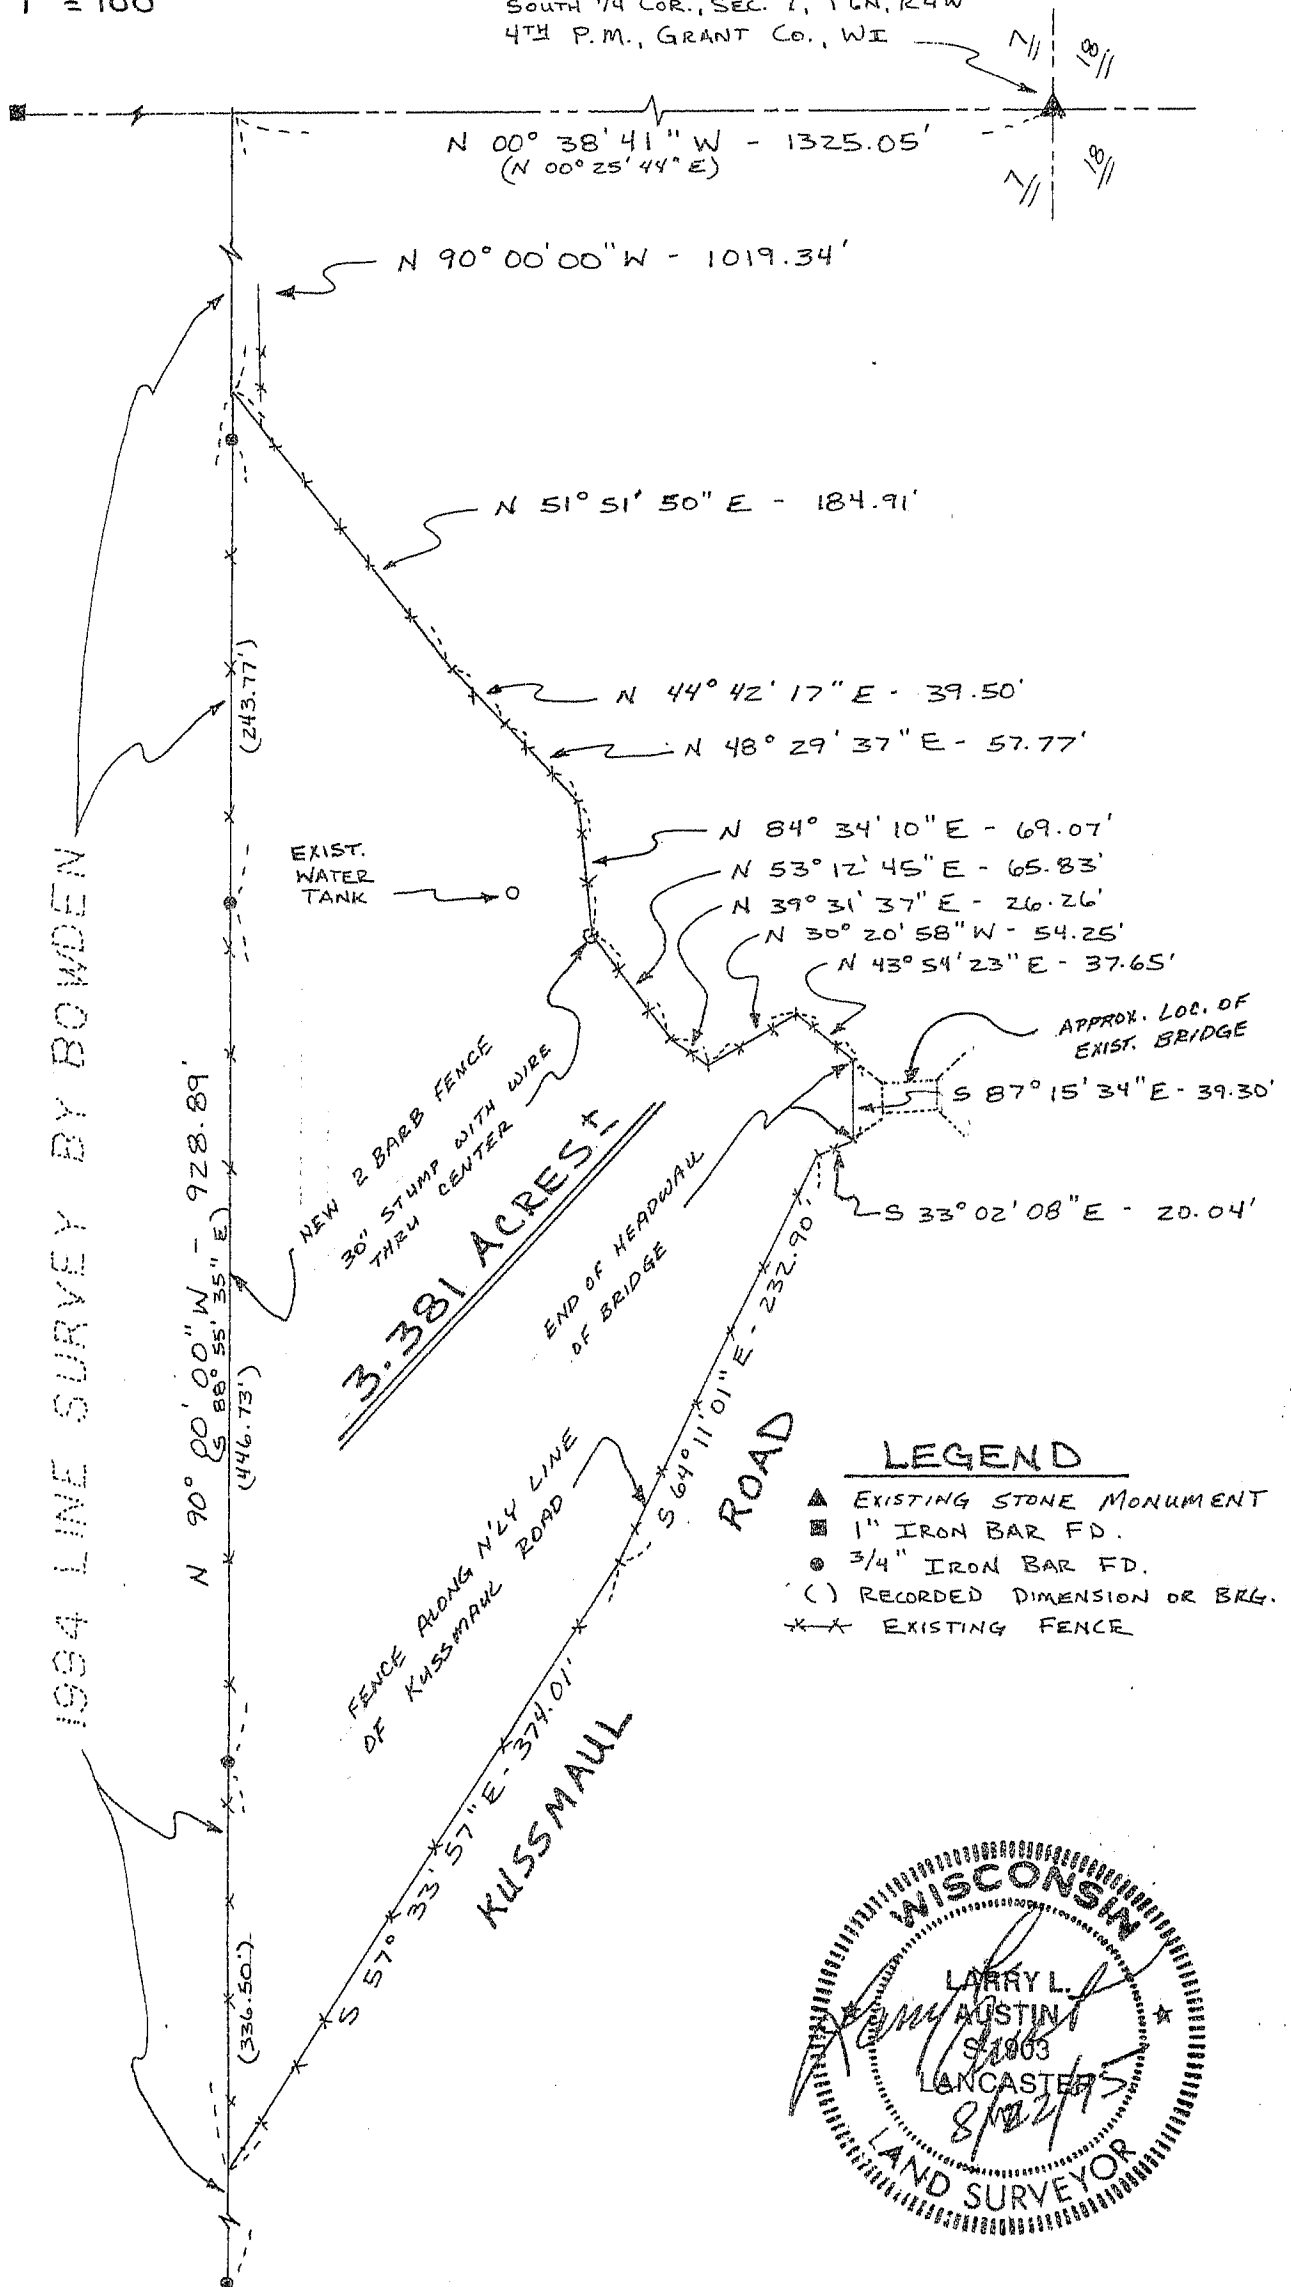 1" = 100'
SOUTH 1/4 COR., SEC. 7, T6N, R4W
4TH P.M., GRANT CO., WI
7
18
7
18
N 00° 38' 41" W - 1325.05'
(N 00° 25' 44" E)
N 90° 00' 00" W - 1019.34'
N 51° 51' 50" E - 184.91'
(243.77')
N 44° 42' 17" E - 39.50'
N 48° 29' 37" E - 57.77'
N 84° 34' 10" E - 69.07'
N 53° 12' 45" E - 65.83'
N 39° 31' 37" E - 26.26'
N 30° 20' 58" W - 54.25'
N 43° 54' 23" E - 37.65'
EXIST.
WATER
TANK
APPROX. LOC. OF
EXIST. BRIDGE
S 87° 15' 34" E - 39.30'
S 33° 02' 08" E - 20.04'
1994 LINE SURVEY BY BOWDEN
N 90° 00' 00" W - 928.89'
(S 88° 55' 35" E)
(446.73')
NEW 2 BARB FENCE
30" STUMP WITH WIRE
THRU CENTER
3.381 ACRES ±
END OF HEADWALL
OF BRIDGE
S 64° 11' 01" E - 232.90'
FENCE ALONG N'LY LINE
OF KUSSMAUL ROAD
S 57° 33' 57" E - 374.01'
KUSSMAUL ROAD
(336.50')
LEGEND
▲ EXISTING STONE MONUMENT
■ 1" IRON BAR FD.
● 3/4" IRON BAR FD.
( ) RECORDED DIMENSION OR BRG.
x-x EXISTING FENCE
WISCONSIN
LARRY L.
AUSTIN
S-1903
LANCASTER
8/22/95
LAND SURVEYOR